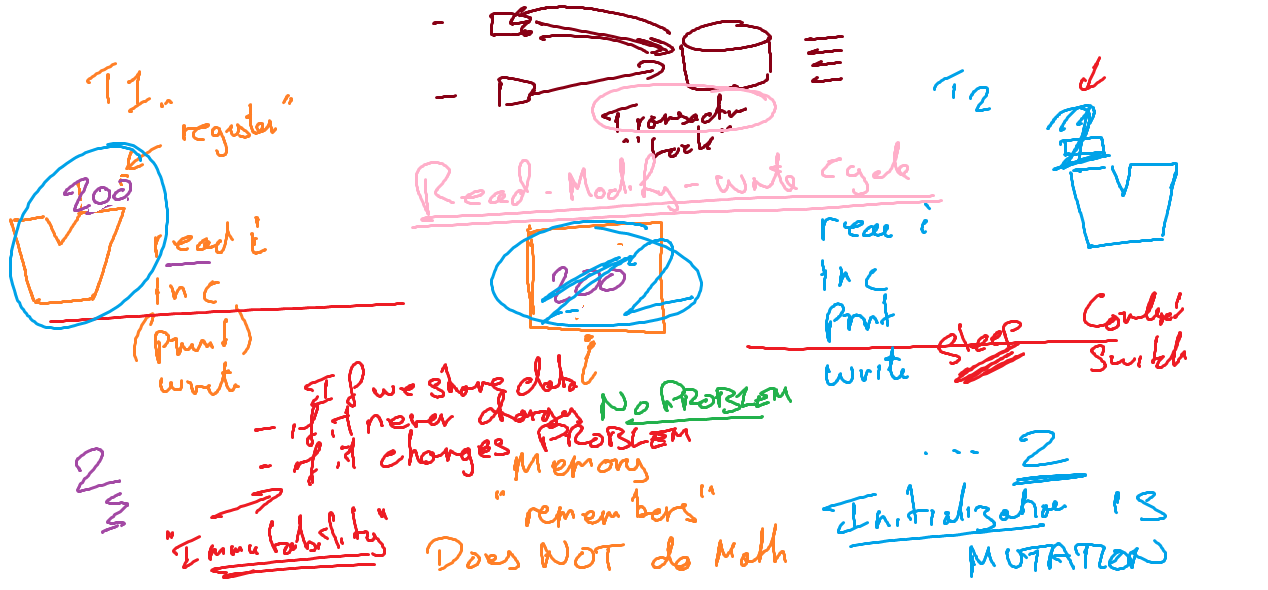 T1
"register"
200
read i
Inc
(Print)
write
2
Transactn
"lock"
Read-Modify-write cycle
200
2
i
T2
read i
Inc
Print
write
Sleep
Context
Switch
If we share data
- if it never changes NO PROBLEM
- if it changes PROBLEM
"Immutability"
Memory
"remembers"
Does NOT do Math
... 2
Initialization is
MUTATION